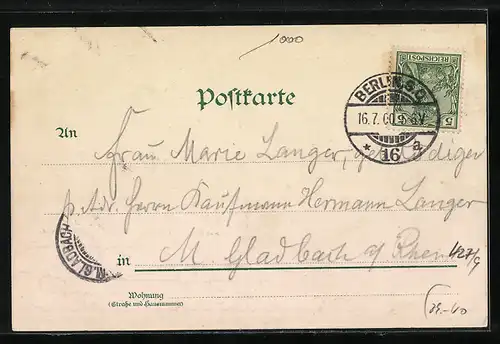 1000
Postkarte
REICHSPOST
5
5
BERLIN S.O.
16.7.00. 5-6V
* 16 a.
An
Frau Marie Langer, geb.
p. Adr. Herrn Kaufmann Hermann Langer
in M. Gladbach a/ Rhein
M. GLADBACH
Wohnung
(Straße und Hausnummer)